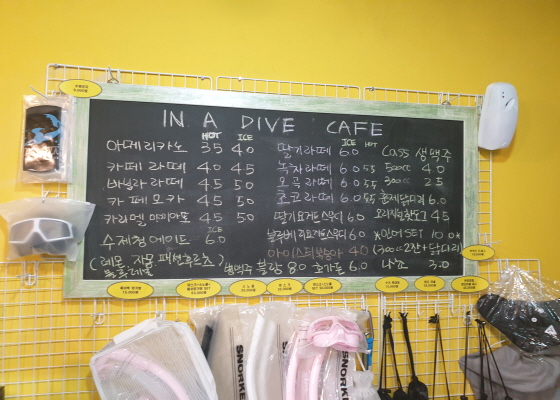 IN A DIVE CAFE
HOT ICE
아메리카노 3.5 4.0
카페 라떼 4.0 4.5
바닐라 라떼 4.5 5.0
카페 모카 4.5 5.0
카라멜 마끼아또 4.5 5.0
ICE
수제청에이드 6.0
(레몬 자몽 패션후르츠
블루레몬)
ICE HOT
딸기라떼 6.0
녹차라떼 6.0 5.5
오곡라떼 6.0 5.5
초코라떼 6.0 5.5
딸기요거트스무디 6.0
블루베리요거트스무디 6.0
아이스티복숭아 4.0
병맥주 블랑 8.0 호가든 6.0
Cass 생맥주
500cc 4.0
300cc 2.5
훈제닭다리 6.0
오리지널핫도그 4.5
*인어 SET 10.0*
(300cc 2잔+닭다리)
나쵸 3.0
SNORKEL
SNORKEL